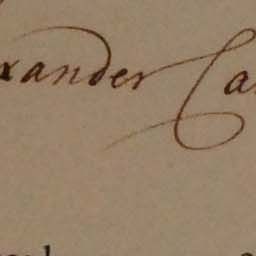 xander Ca